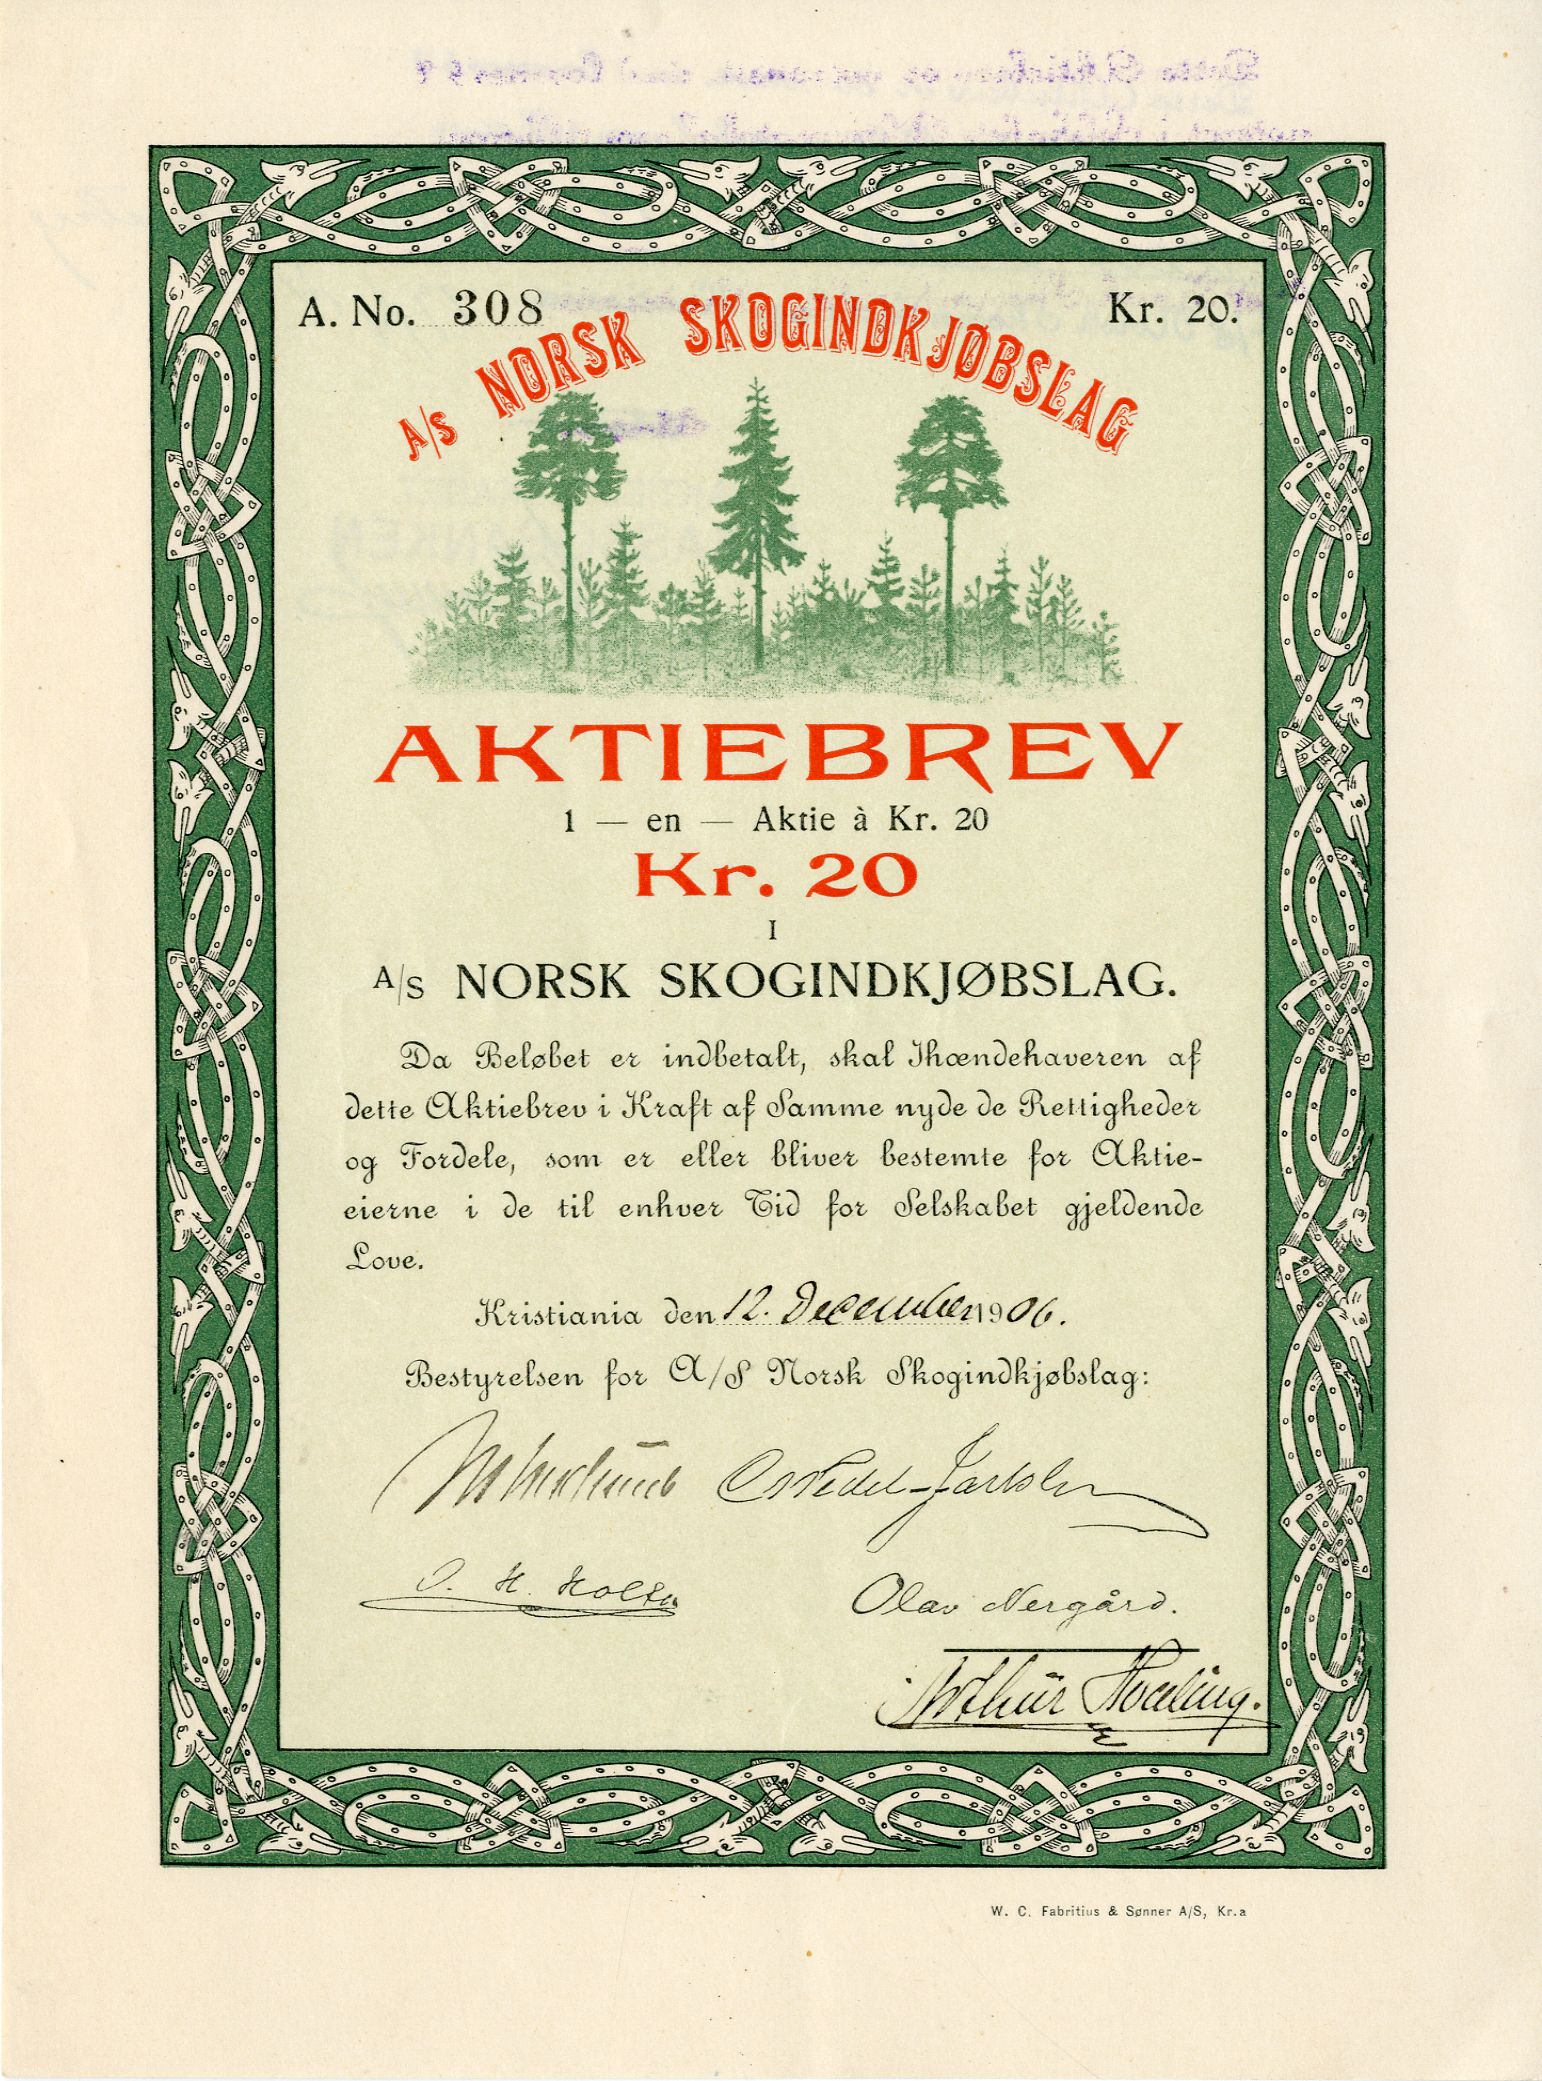 A. No. 308
Kr. 20.
A/S NORSK SKOGINDKJØBSLAG
AKTIEBREV
1 — en — Aktie à Kr. 20
Kr. 20
I
A/S NORSK SKOGINDKJØBSLAG.
Da Beløbet er indbetalt, skal Ihændehaveren af
dette Aktiebrev i Kraft af Samme nyde de Rettigheder
og Fordele, som er eller bliver bestemte for Aktie-
eierne i de til enhver Tid for Selskabet gjeldende
Love.
Kristiania den 12. December 1906.
Bestyrelsen for A/S Norsk Skogindkjøbslag:
Wedel-Jarlsberg
O. H. Holta
Olav Nergård.
Arthur
W. C. Fabritius & Sønner A/S, Kr.a